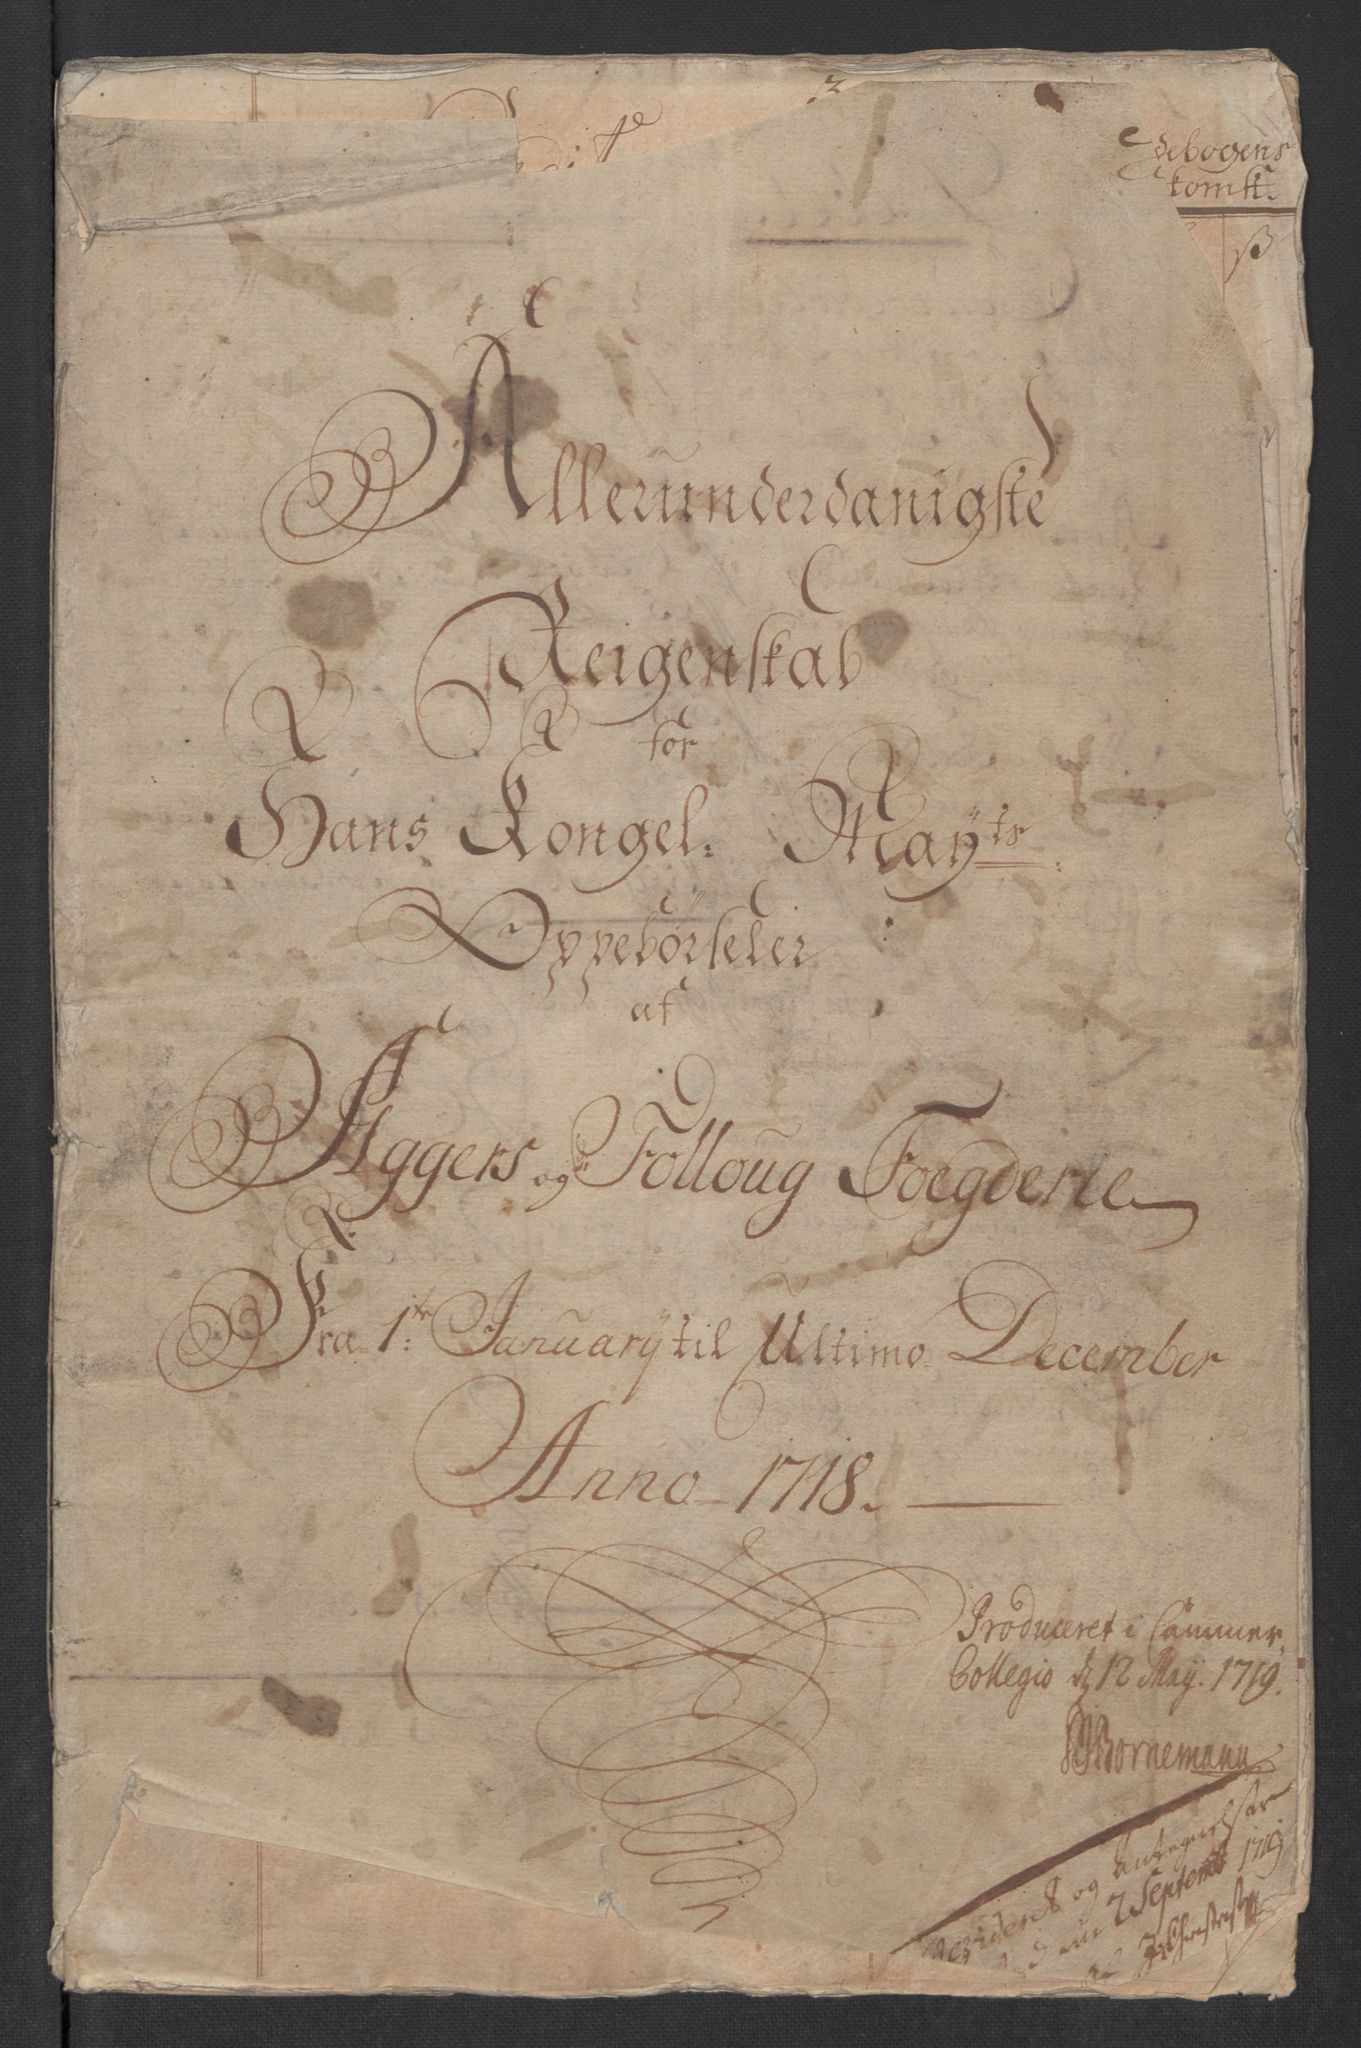 debogens
komst.
ß
Allerunderdanigste
Reigenskab
for
Hans Kongel: Mayts
Oppebørseler
af
Aggers og Folloug Foegderie
Fra 1te January til Ultimo December
Anno 1718.
Produceret i Cammer
Collegio d 12 May. 1719.
Bornemann
Revideret og Antegnelser
den 2 Septemb 1719
af